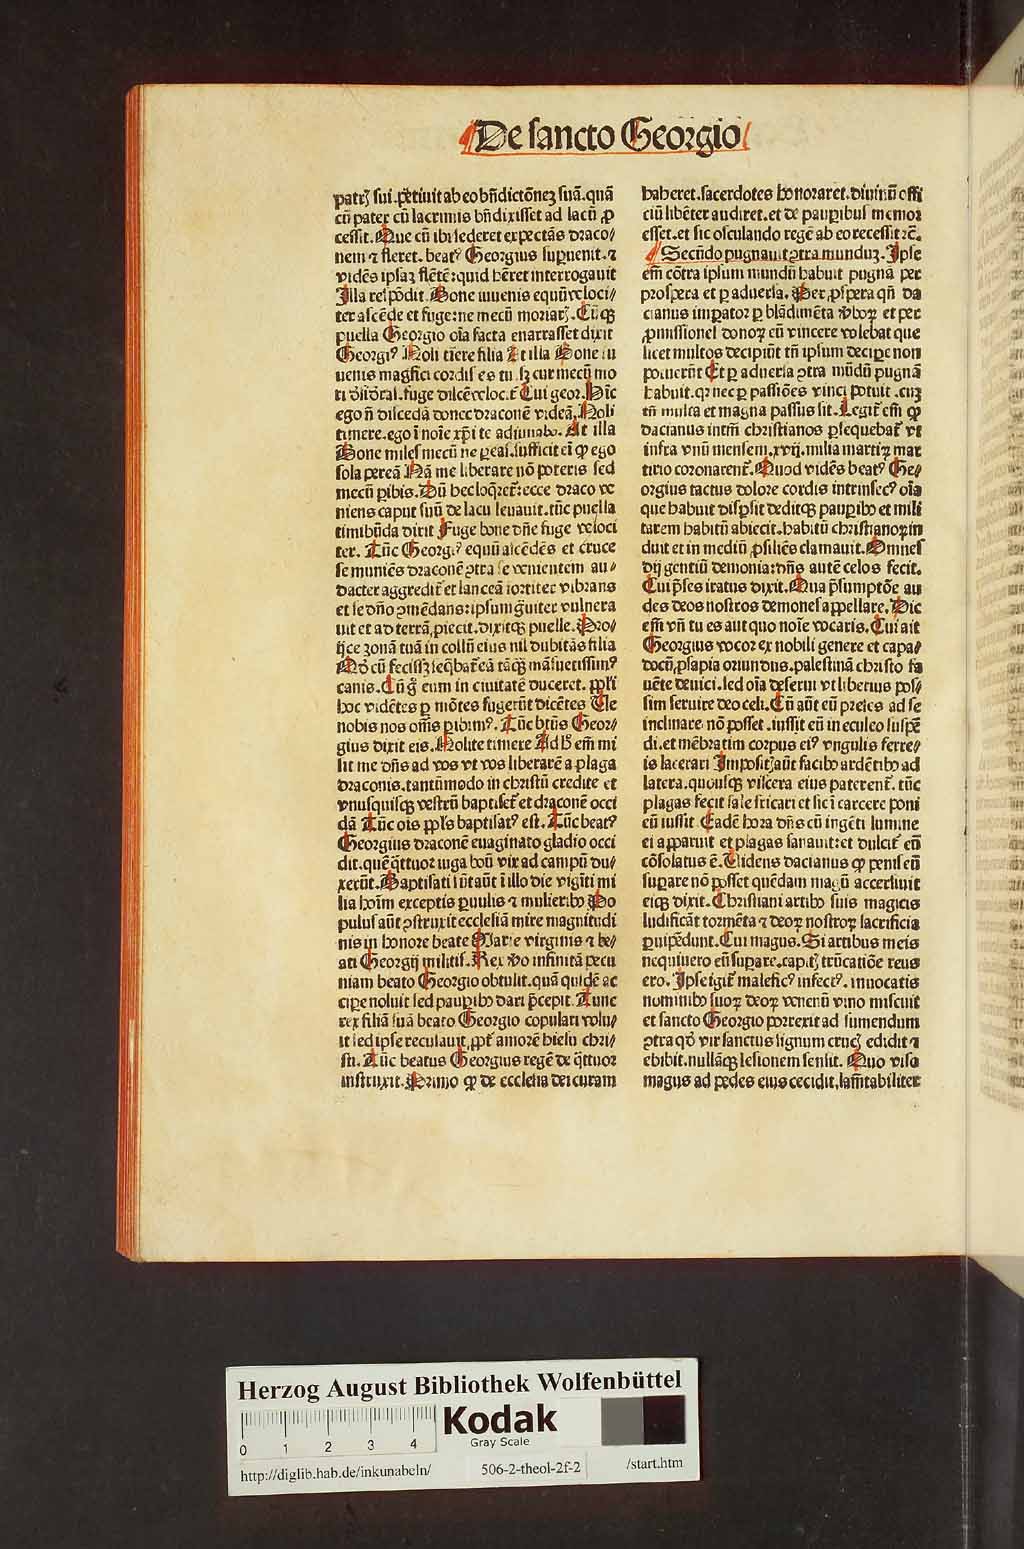 De sancto Georgio
patrꝭ sui. petiuit ab eo bñdictõnez suã. quã
cũ pater cũ lacrimis bñdixisset ad lacũ ꝓ
cessit. Que cũ ibi sederet expectãs draco⸗
nem ⁊ fleret. beatꝰ Georgius supuenit. ⁊
vidẽs ipsaz flẽtẽ: quid hẽret interrogauit
Illa respõdit. Bone iuuenis equũ veloci⸗
ter ascẽde et fuge: ne mecũ moriarꝭ. Cũqꝫ
puella Georgio oĩa facta enarrasset dixit
Georgiꝰ Noli tĩere filia Et illa Bone iu
uenis magfici cordis es tu. sꝫ cur mecũ mo
ri fuge Cui geor. Hĩc
ego ñ discedã donec draconẽ videã. Noli
timere. ego ĩ noĩe xp̃i te adiuuabo. At illa
Bone miles mecũ ne pereas. sufficit ei ꝙ ego
sola pereã Nã me liberare nõ poteris sed
mecũ pibis. Dũ hec loqrẽt: ecce draco ve
niens caput suũ de lacu leuauit. tũc puella
timibũda dixit Fuge bone dñe fuge veloci
ter. Tũc Georgiꝰ equũ ascẽdẽs et cruce
se muniẽs draconẽ ↄtra se venientem au⸗
dacter aggredit̃ et lanceã fortiter vibrans
et se dño ↄmẽdans: ipsum g̃uiter vulnera
uit et ad terrã ꝓiecit. dixitqꝫ puelle. Pro⸗
ijce zonã tuã in collũ eius nil dubitãs filia
Nõ cũ fecissꝫ seqbat̃ eã tãqꝫ mãsuetissimꝰ
canis. Cũ g̃ eum in ciuitatẽ duceret. ppl̃i
hoc vidẽtes p mõtes fugerũt dicẽtes Ue
nobis nos om̃s pibimꝰ. Tũc btũs Geor⸗
gius dixit eis. Nolite timere Ad h̾ em̃ mi
sit me dñs ad vos vt vos liberarẽ a plaga
draconis. tantũmodo in christũ credite et
vnusquisqꝫ vestrũ baptiset̃ et draconẽ occi
dã Tũc oĩs ppl̃s baptisatꝰ est. Tũc beatꝰ
Georgius draconẽ euaginato gladio occi
dit. quẽ q̃ttuor iuga boũ vix ad campũ du⸗
xerũt. Baptisati sũt aũt ĩ illo die vigĩti mi
lia hoĩm exceptis puulis ⁊ mulieribꝰ Po
pulus aũt ↄstruxit ecclesiã mire magnitudi
nis in honore beate Marie virginis ⁊ be⸗
ati Georgij militis. Rex vo infinitã pecu
niam beato Georgio obtulit. quã quidẽ ac
cipe noluit sed paupibꝰ dari p̃cepit. Tunc
rex filiã suã beato Georgio copulari volu⸗
it sed ipse recusauit. ꝓpt̃ amorẽ hiesu chri⸗
sti. Tũc beatus Georgius regẽ de q̃ttuor
instruxit. Primo ꝙ de ecclesia dei curam
haberet. sacerdotes honoraret. diuinũ offi
ciũ libẽter audiret. et de paupibus memor
esset. et sic osculando regẽ ab eo recessit ⁊c̃.
Secũdo pugnauit ↄtra munduz. Ipse
em̃ cõtra ipsum mundũ habuit pugnã per
prospera et p aduersa. Per ꝓspera qñ da
cianus impator p blãdimẽta vboꝝ et per
ꝓmissiones donoꝝ eũ vincere volebat que
licet multos decipiũt tñ ipsum decipe non
potuerũt Et p aduersa ↄtra mũdũ pugnã
habuit. qꝛ nec p passiões vinci potuit. cuꝫ
tñ multa et magna passus sit. Legit̃ em̃ ꝙ
dacianus intm̃ christianos psequebat̃ vt
infra vnũ mensem. xvij. milia martiꝝ mar
tirio coronarent̃. Quod vidẽs beatꝰ Ge⸗
orgius tactus dolore cordis intrinsecꝰ oĩa
que habuit dispsit deditqꝫ paupibꝰ et mili
tarem habitũ abiecit. habitũ christianoꝝ in
duit et in mediũ ꝓsiliẽs clamauit. Omnes
dij gentiũ demonia: dñs autẽ celos fecit.
Cui p̃ses iratus dixit. Qua p̃sumptõe au
des deos nostros demones appellare. Dic
em̃ vñ tu es aut quo noĩe vocaris. Cui ait
Georgius vocor ex nobili genere et capa⸗
docũ ꝓsapia oriundus. palestinã christo fa
uẽte deuici. sed oĩa deserui vt liberius pos⸗
sim seruire deo celi. Cũ aũt eũ preses ad se
inclinare nõ posset. iussit eũ in eculeo suspẽ
di. et mẽbratim corpus eiꝰ vngulis ferre⸗
is lacerari Impositꝭ aũt facibꝰ ardẽtibꝰ ad
latera. quousqꝫ viscera eius paterent̃. tũc
plagas fecit sale fricari et sic ĩ carcere poni
eũ iussit. Eadẽ hora dñs cũ ingẽti lumine
ei apparuit et plagas sanauit: et dulcit̃ eũ
cõsolatus ẽ. Uidens dacianus ꝙ penis eũ
supare nõ posset quẽdam magũ accersiuit
eiqꝫ dixit. Christiani artibꝰ suis magicis
ludificãt tormẽta ⁊ deoꝝ nostroꝝ sacrificia
puipẽdunt. Cui magus. Si artibus meis
nequiuero eũ supare. capitꝭ trũcatiõe reus
ero. Ipse igit̃ maleficꝰ infectꝰ. inuocatis
nominibꝰ suoꝝ deoꝝ venenũ vino miscuit
et sancto Georgio porrexit ad sumendum
ↄtra qd̾ vir sanctus signum crucꝭ edidit ⁊
ebibit. nullãqꝫ lesionem sensit. Quo viso
magus ad pedes eius cecidit. lam̃tabiliter
Herzog August Bibliothek Wolfenbüttel
0 1 2 3 4
Kodak
Gray Scale
http://diglib.hab.de/inkunabeln/ 506-2-theol-2f-2 /start.htm